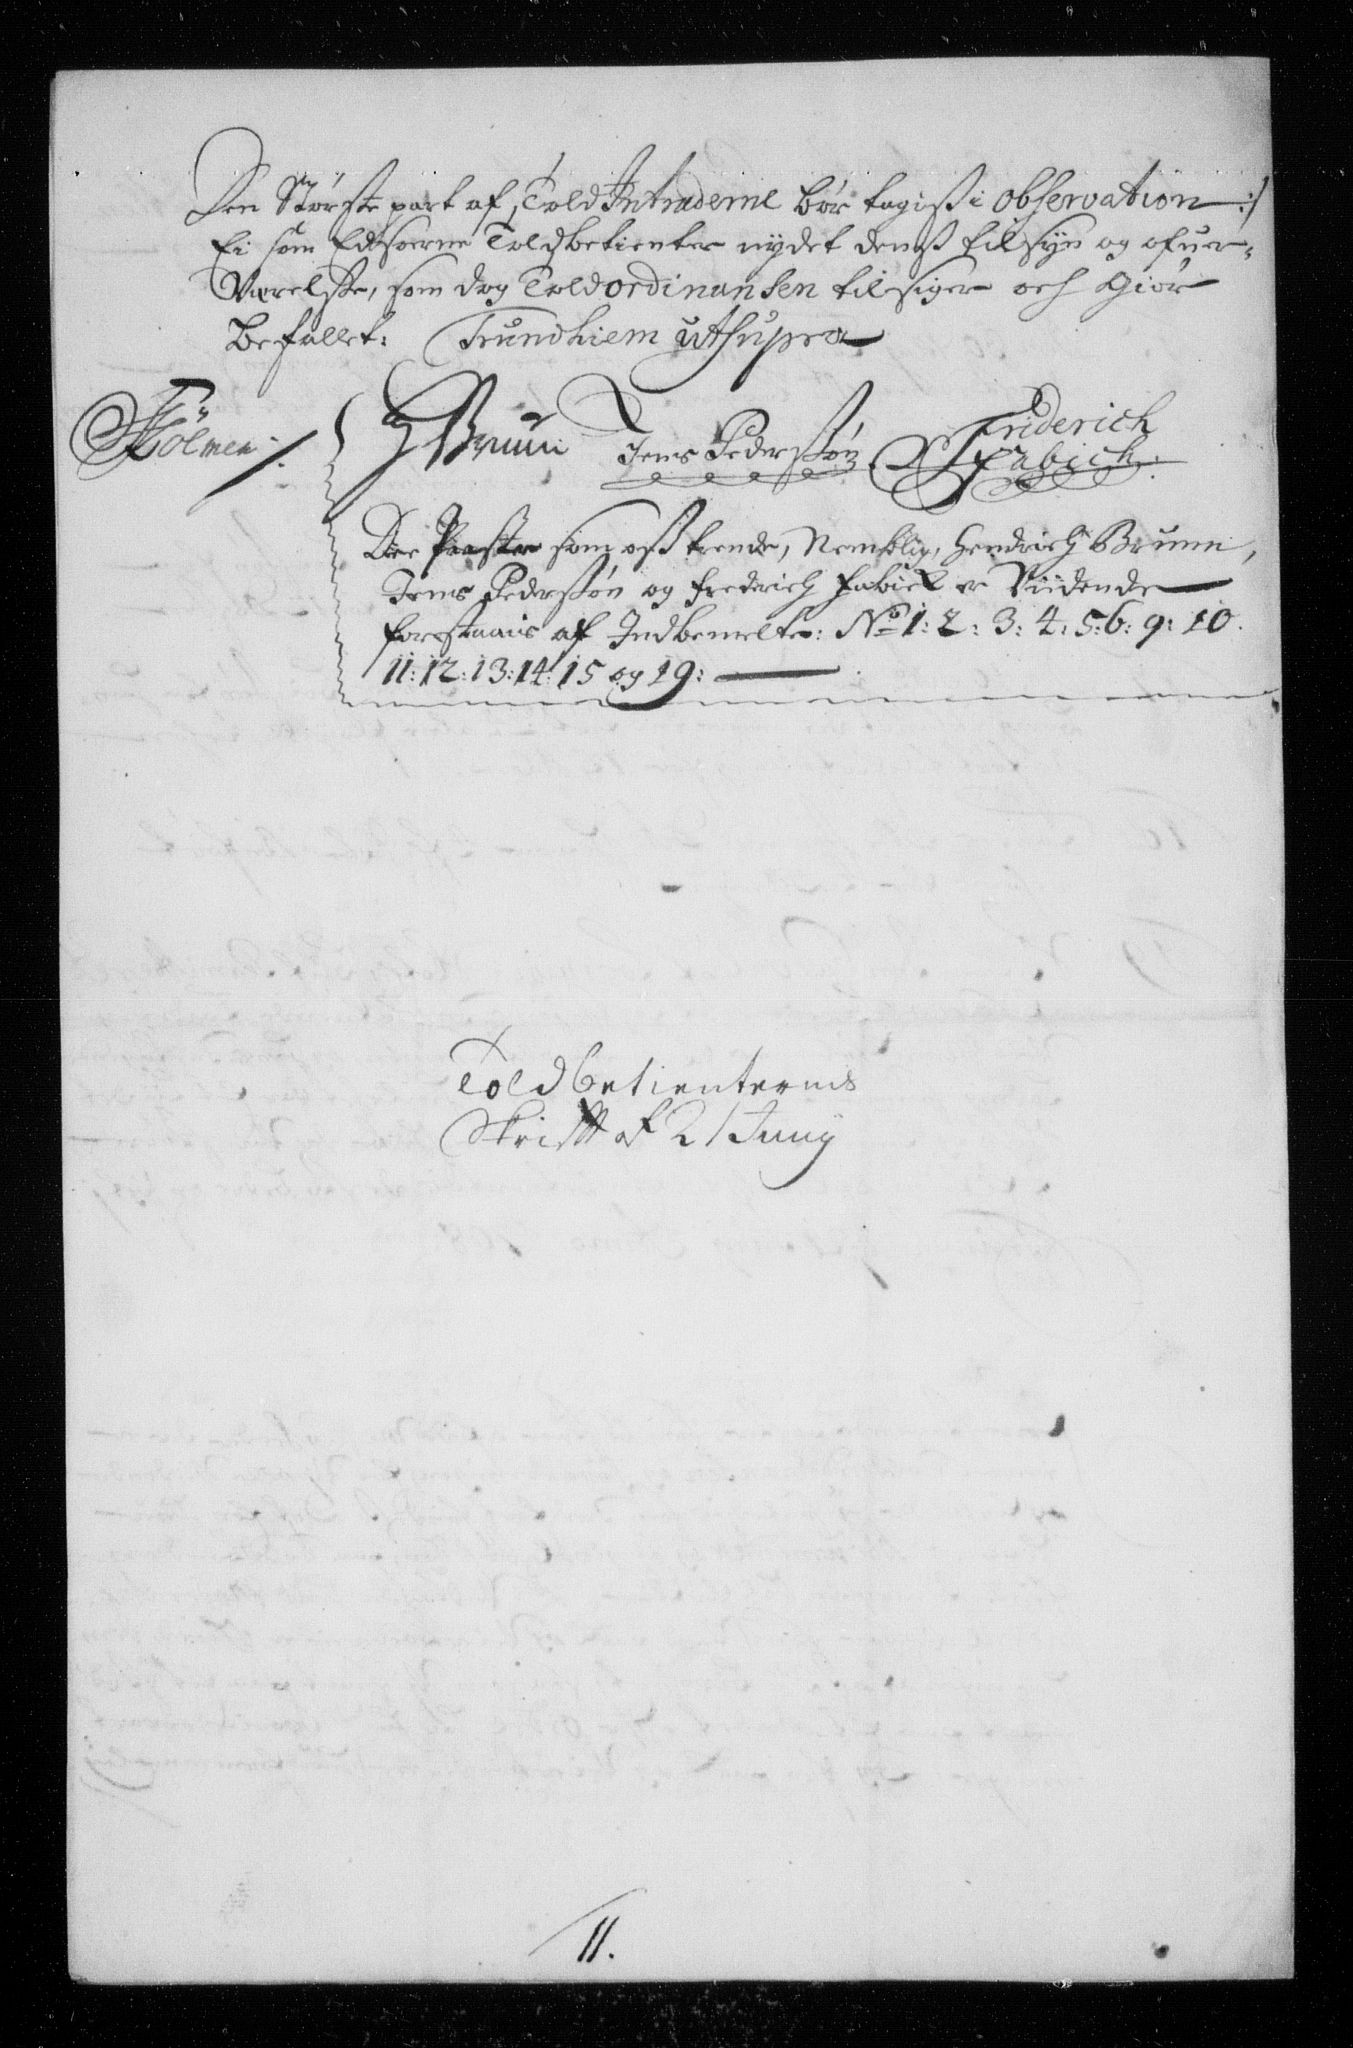 Den Störste part af Told Intraderne bör tagis i observation :/
Ei som Edsorne Toldbetienter nydet denß tilsyn og ofuer=
Værelse, som dog Told ordinansen tilsiger och giör
befallet: Trundhiem ut supra
Holmen /: HBruun Jens Pederssön Friderich
Fabich
Die Poster som oß trende, Nemblig, Hendrich Bruun,
Jens Pederssön og Frederich Fabich er Viidende
forstaais af Indbemelte: No 1: 2: 3: 4: 5: 6: 9: 10.
11: 12: 13: 14: 15 og 19:
Toldbetienternis
Skrifft af 21 Juny
11.